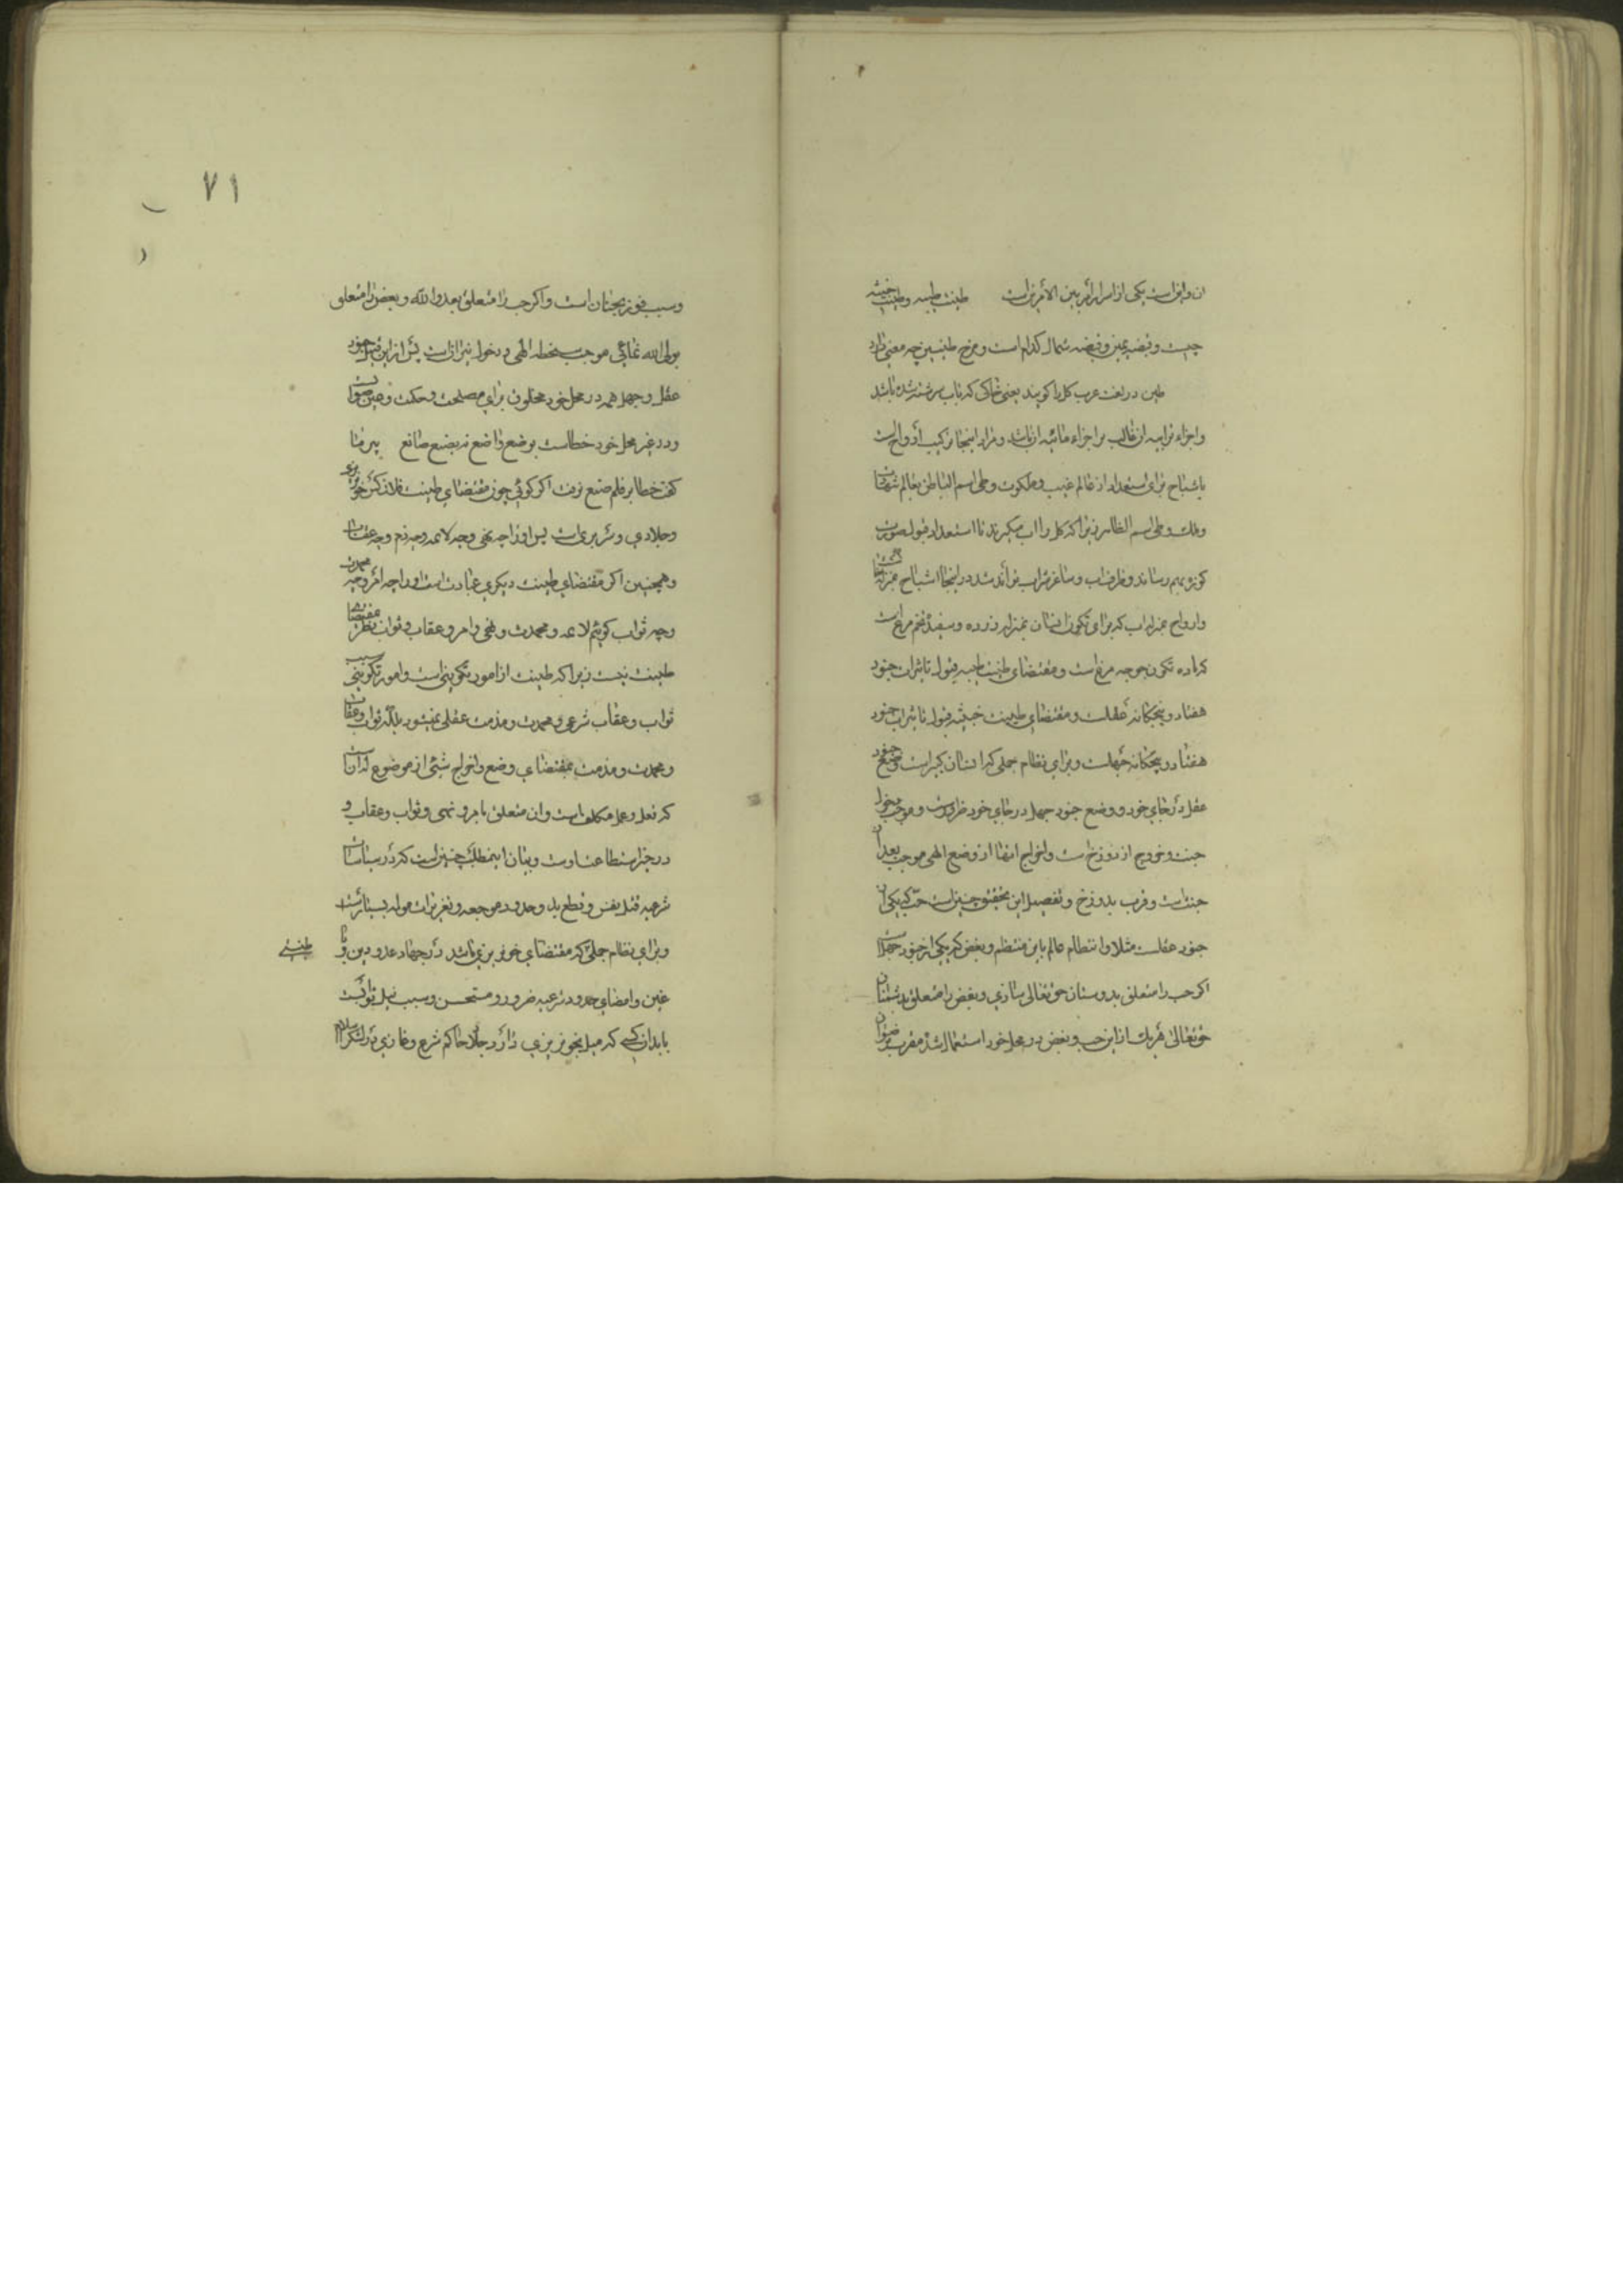 ان و این است یکی از اسرار امر بین الامرین است طینت طیبه و طینت خبیثه
چیست و قبضه یمین و قبضه شمال کدام است و مزج طینتین چه معنی دارد
طین در لغت عرب کل را کویند یعنی خاکی که باب سرشته شده باشد
و اجزاء ترابیه ان غالب بر اجزاء مائیه ان باشد و مراد اینجا ترکیب ارواح است
باشباح برای استعداد از عالم غیب و ملکوت و طی اسم الباطن بعالم شهادت
و ملک و طی اسم الظاهر زیرا که کل را اب میکیرند تا استعداد قبول صورت
کوزه بهم رساند و ظرف اب و ساغر شراب تواند شد در اینجا اشباح بمنزله خاک
و ارواح بمنزله اب که برای تکون انسان بمنزله زرده و سفیده تخم مرغ است
که ماده تکون جوجه مرغ است و مقتضای طینت طیبه قبول تاثیرات جنود
هفتاد و پنجکانه عقلست و مقتضای طینت خبیثه قبول تاثیرات جنود
هفتاد و پنجکانه جهلست و برای نظام جملی که انسان کبیر است وضع جنود
عقل در جای خود و وضع جنود جهل در جای خود ضرور است و موجب دخول
جنت و خروج از دوزخ است و اخراج انها از وضع الهی موجب بعد از
جنت است و قرب بدوزخ و تفصیل این تحقیق چنین است حب که یکی از
جنود عقلست مثلا و انتظام عالم باین منتظم و بغض که یکی از جنود جهل است
اکر حب را متعلق بدوستان حق تعالی سازی و بغض را متعلق بدشمنان
حق تعالی هر یک از این حب و بغض در محل خود استعمال شد مقرب برضوان
۷۱
و سبب فوز بجنان است و اکر حب را متعلق بعدو الله و بغض را متعلق
بولی الله نمائی موجب سخط الهی و دخول نیران است پس از این قبیل جنود
عقل و جهل همه در محل خود مخلوق برای مصلحت و حکمت و عین صواب
و در غیر محل خود خطاست بوضع واضع نه بصنع صانع پیر ما
کفت خطا بر قلم صنع نرفت اکر کوئی چون مقتضای طینت فلان کس خونریزی
و جلادی و شریری است پس او را چه نهی و چه لائمه و چه ذم و چه عقاب
و همچنین اکر مقتضای طینت دیکری عبادت است او را چه امر و چه محمدت
و چه ثواب کوئیم لائمه و محمدت و نهی و امر و عقاب و ثواب بنظر بمقتضای
طینت نیست زیرا که طینت از امور تکوینی است و امور تکوینی سبب
ثواب و عقاب شرعی و محمدت و مذمت عقلی نمیشود بلکه ثواب و عقاب
و محمدت و مذمت بمقتضای وضع و اخراج شیئ از موضوع له ان است
که فعل و عمل مکلف است و ان متعلق بامر و نهی و ثواب و عقاب و
در حیز استطاعت اوست و بیان اینمطلب چنین است که در سیاسات
شرعیه قتل نفس و قطع ید و حدود موجعه و تعزیرات مولمه بسیار است
و برای نظام جملی که مقتضای خونریزی باشد در جهاد عدو دین و
طینتی
غیره و امضای حدود شرعیه ضرور و مستحسن و سبب نیل ثوابست
باید ان کسی که میل بخونریزی دارد جلاد حاکم شرع و غازی در لشکر اسلام